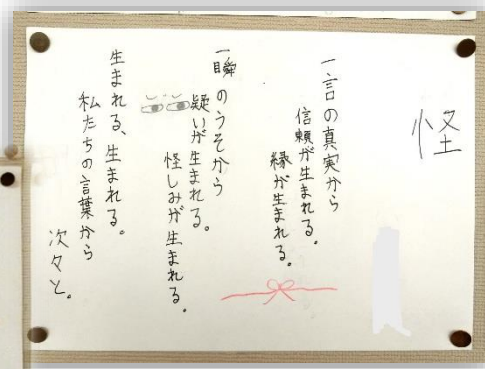 怪
一言の真実から
信頼が生まれる。
縁が生まれる。
一瞬のうそから
疑いが生まれる。
怪しみが生まれる。
生まれる、生まれる。
私たちの言葉から
次々と。